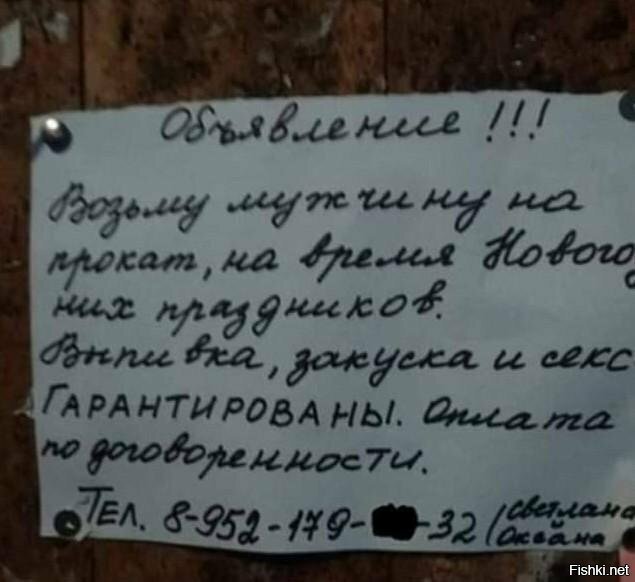 Объявление !!!
Возьму мужчину на
прокат, на время Нового
них праздников.
Выпивка, закуска и секс
ГАРАНТИРОВАНЫ. Оплата
по договоренности.
Тел. 8-952-179- -32 (Светлана
Оксана
Fishki.net